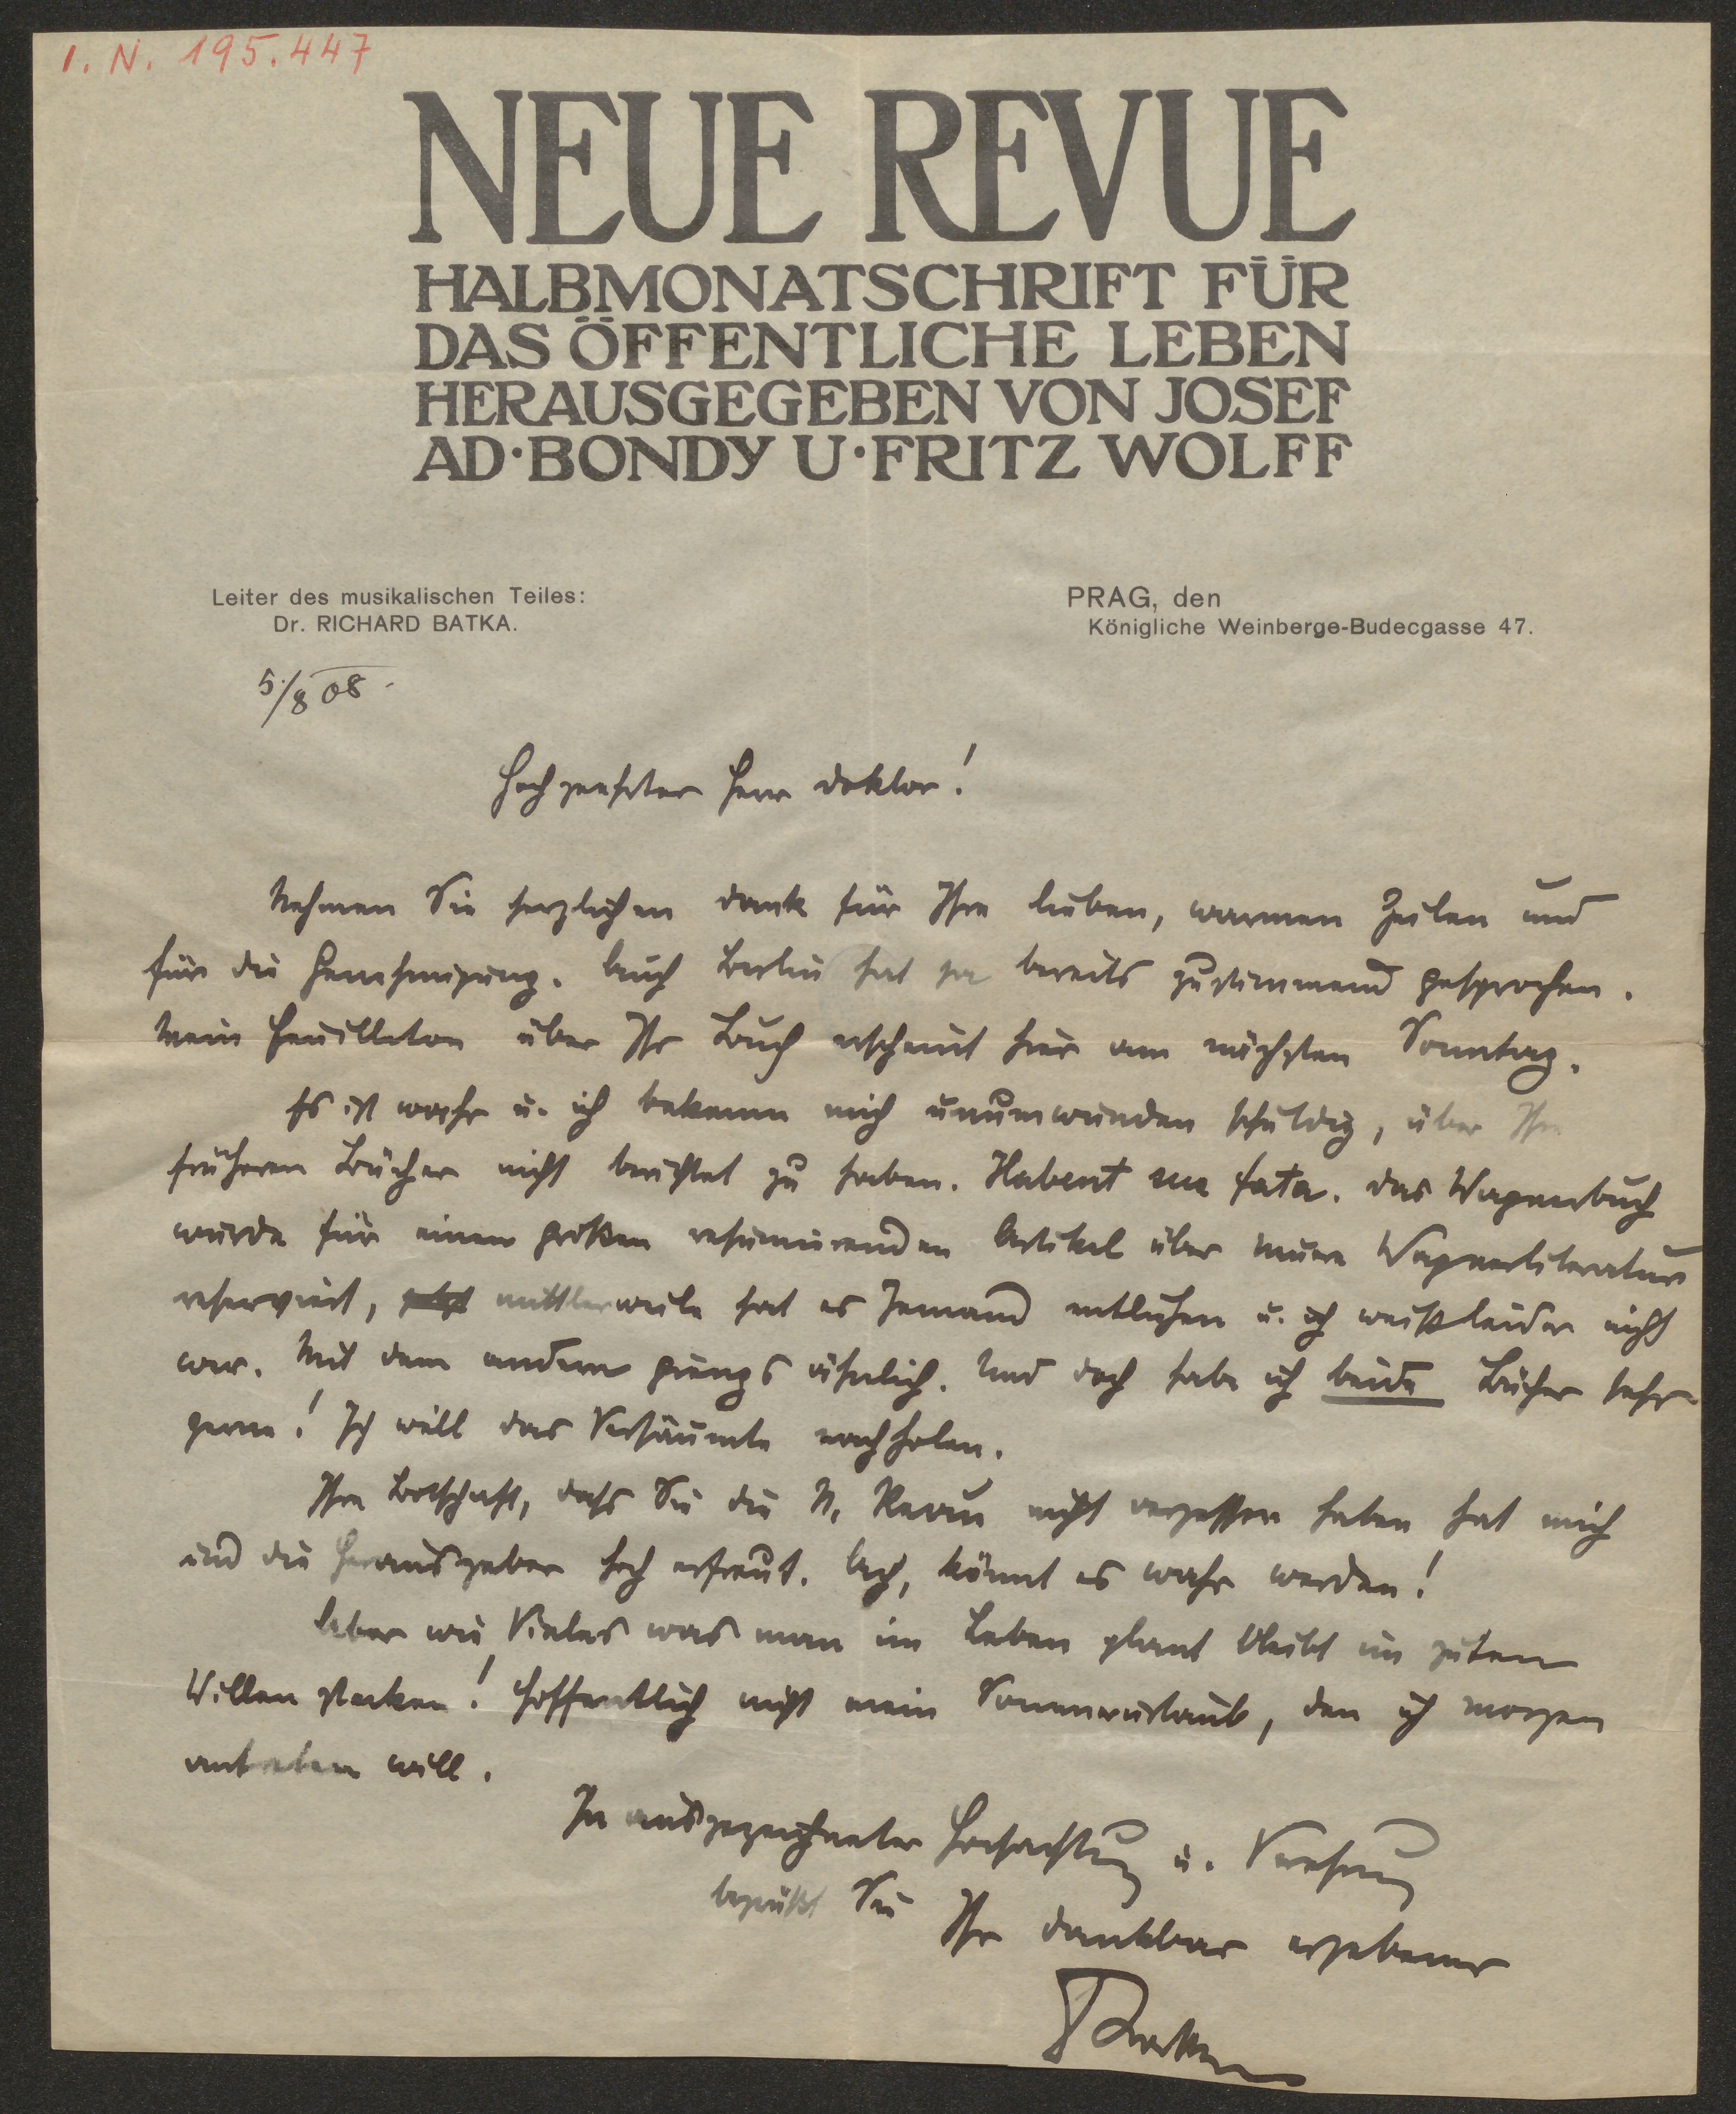 I. N. 195.447
NEUE REVUE
HALBMONATSCHRIFT FÜR
DAS ÖFFENTLICHE LEBEN
HERAUSGEGEBEN VON JOSEF
AD·BONDY U·FRITZ WOLFF
Leiter des musikalischen Teiles:
Dr. RICHARD BATKA.
PRAG, den
Königliche Weinberge-Budecgasse 47.
5./8 08.
Hochgeehrter Herr Doktor!
Nehmen Sie herzlichen Dank für Ihre lieben, warmen Zeilen und
für die Genehmigung. Auch Berlin hat ja bereits zustimmend gesprochen.
Mein Feuilleton über Ihr Buch erscheint hier am nächsten Sonntag.
Es ist wahr u. ich bekenne mich unumwunden schuldig, über Ihre
früheren Bücher nicht berichtet zu haben. Habent sua fata. Das Wagnerbuch
wurde für einen großen resumirenden Artikel über neuere Wagnerliteratur
reserviert, mittlerweile hat es Jemand entliehen u. ich weiß leider nicht
wer. Mit dem andern gieng's ähnlich. Und doch habe ich beide Bücher sehr
gerne! Ich will das Versäumte nachholen.
Ihre Botschaft, dass Sie die N. Revue nicht vergessen haben hat mich
und die Herausgeber hoch erfreut. Ach, könnt es wahr werden!
Aber wie Vieles was man im Leben plant bleibt im guten
Willen stecken! Hoffentlich nicht mein Sommerurlaub, den ich morgen
antreten will.
In ausgezeichneter Hochachtung u. Verehrung
begrüßt Sie
Ihr dankbar ergebener
RBatka